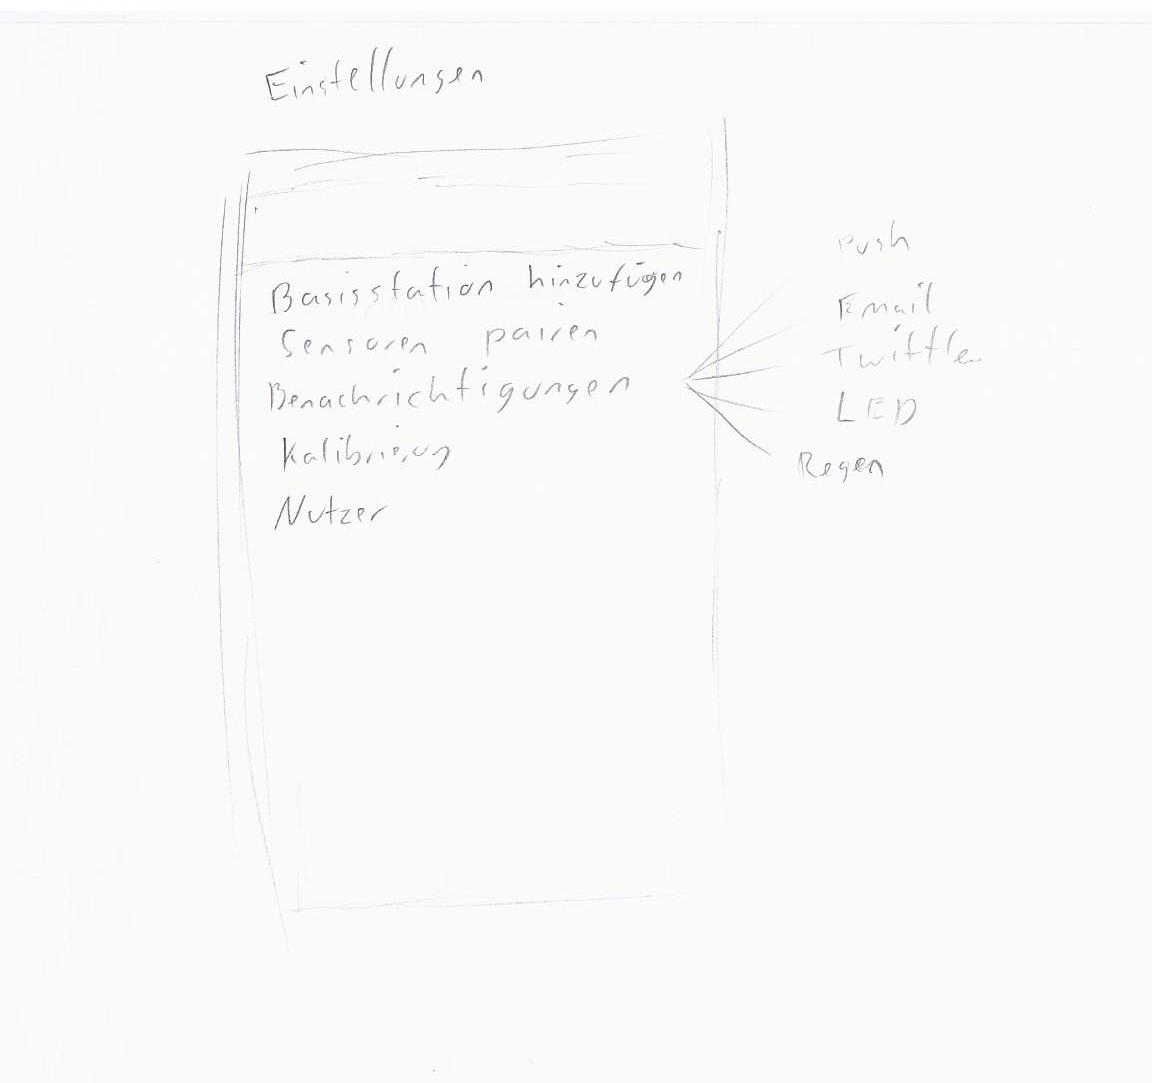 Einstellungen
Basisstation hinzufügen
Sensoren pairen
Benachrichtigungen
Kalibrierung
Nutzer
Push
Email
Twitter
LED
Regen